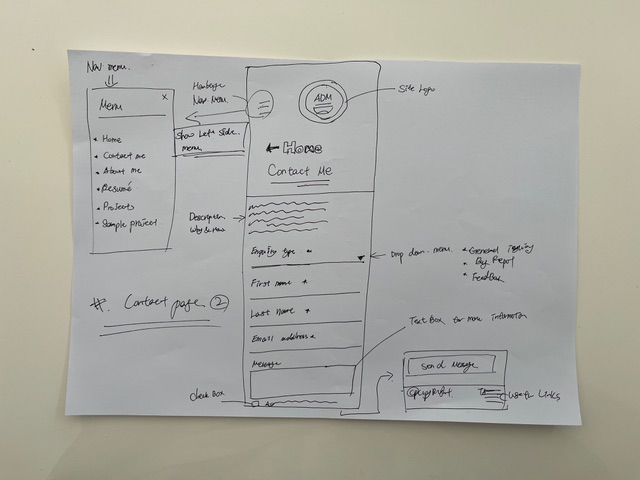 Nav menu
Menu ×
Home
Contact me
About me
Resumé
Projects
Sample project
#. Contact page ②
Nav Menu
Show Left side
menu
ADM
Site Logo
← Home
Contact Me
Description
Enquiry type *
Drop down menu
Feedback
First name *
Last name *
Email address *
Message
Text Box for more information
Check Box
Send Message
Copyright
Links